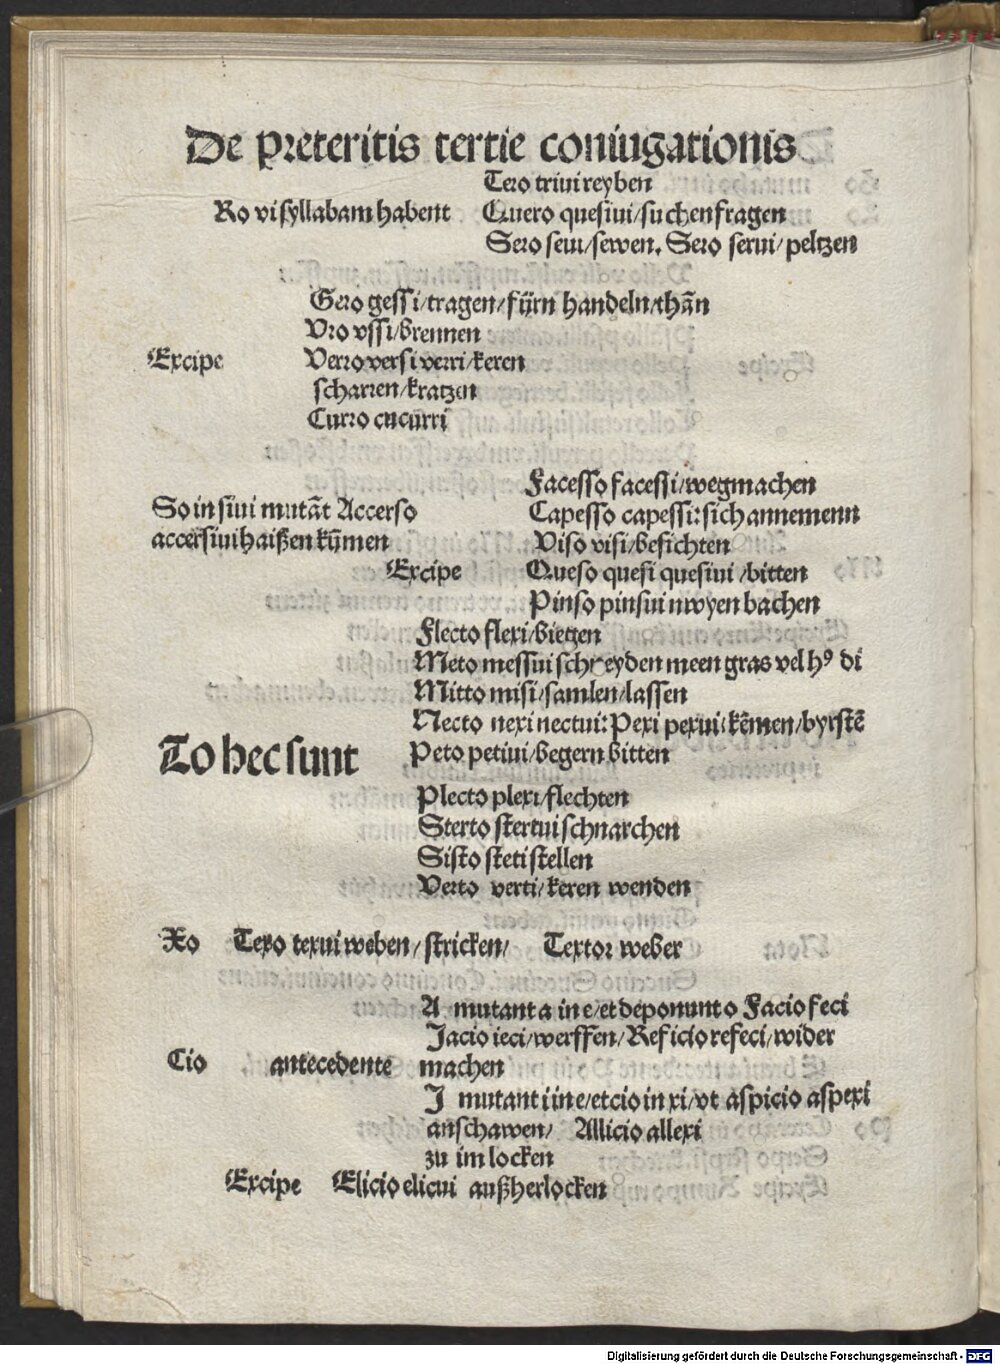 De preteritis tertie coniugationis
Tero triui reyben
Ro vi syllabam habent Quero quesiui/suchen fragen
Sero seui/sewen. Sero serui/peltzen
Gero gessi/tragen/fürn handeln/thān
Vro vssi/brennen
Excipe Verro versi verri/keren
scharren/kratzen
Curro cucurri
Facesso facessi/wegmachen
So in siui mutāt Accerso Capesso capessi:sich annemenn
accersiui haißen kūmen Viso visi/besichten
Excipe Queso quesi quesiui/bitten
Pinso pinsui nwyen bachen
Flecto flexi/biegen
Meto messui schreyden meen gras vel hꝰ di
Mitto misi/samlen/lassen
Necto nexi nectui:Pexi pexui/kēmen/byrstē
To hec sunt Peto petiui/begern bitten
Plecto plexi/flechten
Sterto stertui schnarchen
Sisto steti stellen
Verto verti/keren wenden
Xo Texo texui weben/stricken/ Textor weber
A mutant a in e/et deponunt o Facio feci
Jacio ieci/werffen/Reficio refeci/wider
Cio antecedente machen
J mutant i in e/et cio in xi/vt aspicio aspexi
anschawen/ Allicio allexi
zu im locken
Excipe Elicio elicui außherlocken
Digitalisierung gefördert durch die Deutsche Forschungsgemeinschaft - DFG